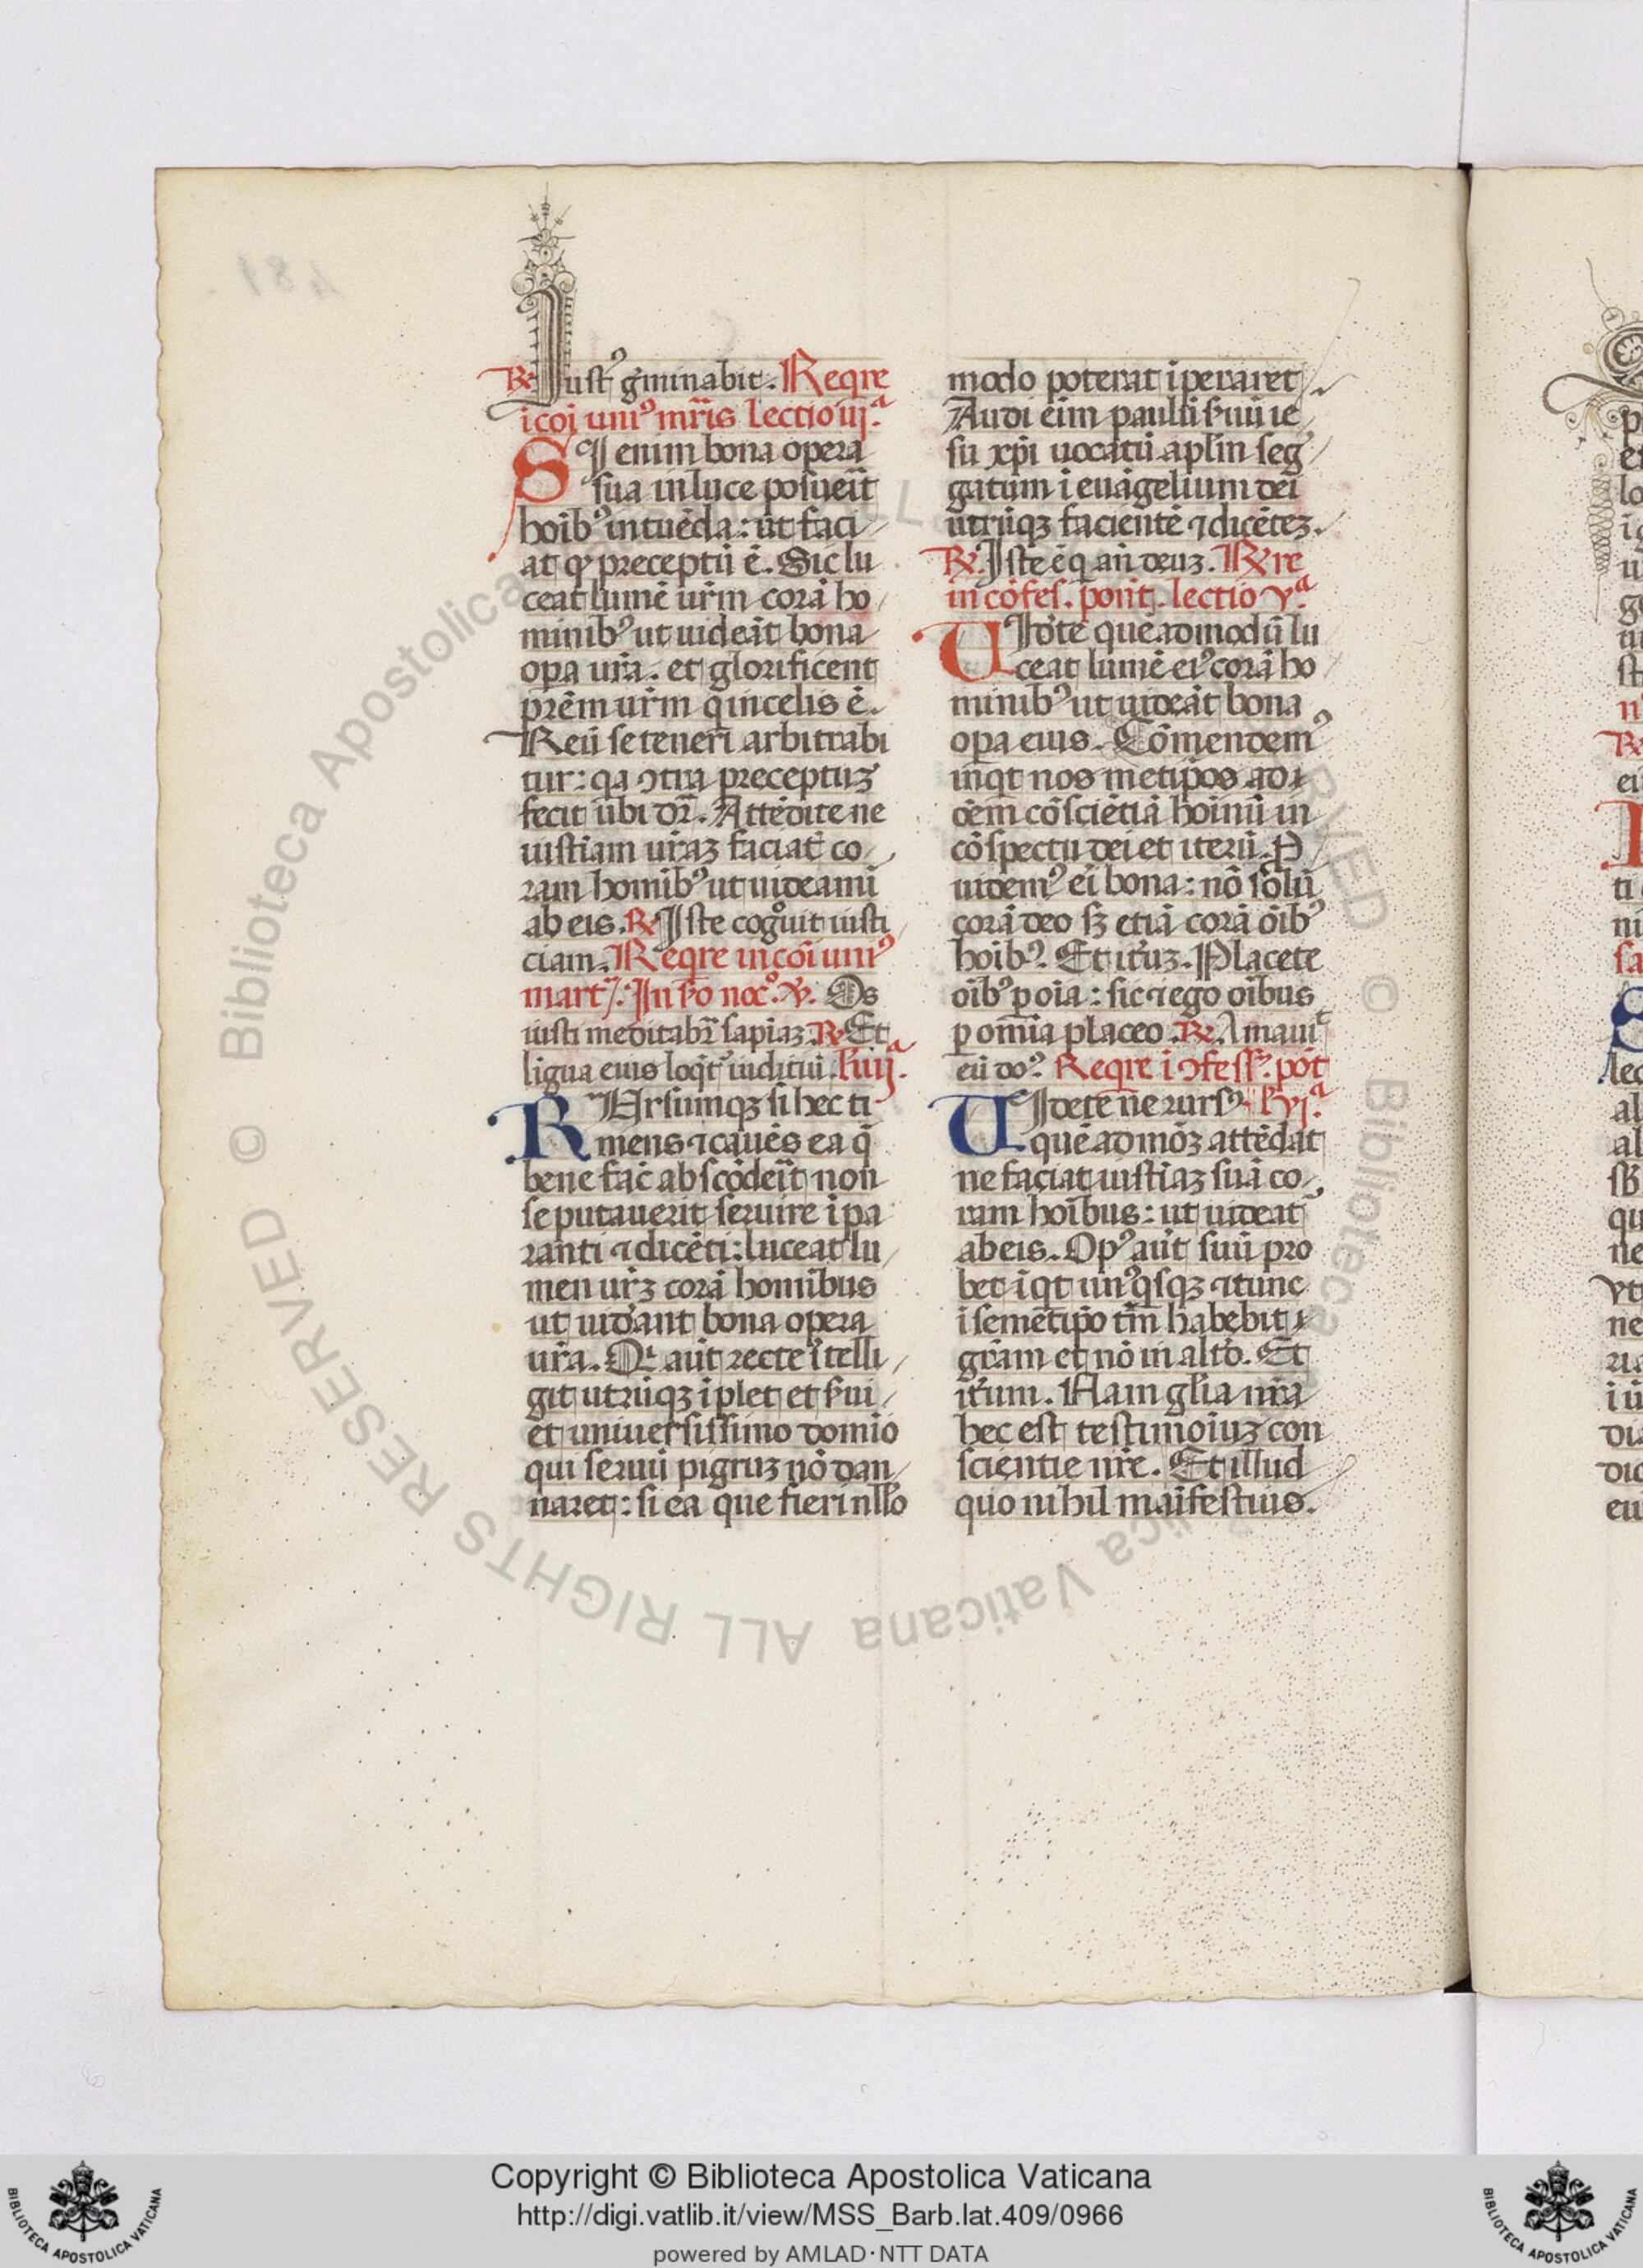 ℞ Iustꝰ gͥminabit. Reqͥre
ī coī uniꝰ mr̄is Lectio iijª.
SI enim bona opera
sua in luce posueīt
hoībꝰ intuēda: ut faci
at qͦ preceptū ē. Sic lu
ceat lumē ur̄m corā ho
minibꝰ ut uideāt bona
opa ur̄a. et glorificent
pr̄em ur̄m q in celis ē.
Reū se teneri arbitrabi
tur: qa ꝯtra preceptuꝫ
fecit ubi dr̄. Attēdite ne
iustiam ur̄aꝫ faciat̄ co
ram homībꝰ ut uideamī
ab eis. ℞ Iste cogͦuit iusti
ciam. Reqͥre in coī uniꝰ
mart͛. In sͦo nocͦ. ℣. Os
iusti meditabr̄ sapiaꝫ. ℞ Et
ligua eius loqt̄ iuditiū. L̄ iiijª.
RUrsumqꝫ si hec ti
mens ⁊ cauēs ea q̄
bene fac̄ abscōdeīt non
se putauerit seruire īpa
ranti ⁊ dicēti: luceat lu
men ur̄ꝫ corā homībus
ut uidāant bona opera
ur̄a. Qͥ aut̄ recte ītelli
git utrūqꝫ īplet et s̄ui
et uniuersissimo domīo
qui seruū pigruꝫ nō dan
naret: si ea que fieri nll̄o
modo poterat īperaret
Audi eīm paulū s̄uū ie
su xp̄i uocatū aplm̄ seḡ
gatum ī euāgelium dei
utrūqꝫ facientē ⁊ dicēteꝫ.
℞. Iste ē q̄ an̄ deuꝫ. Rͥre
in cōfes. pont̄. lectio vª.
UIdēte quēadmodū lu
ceat lumē eiꝰ corā ho
minibꝰ ut uideāt bona
opa eius. Cōmendemꝰ
inqͥt nosmetip̄os ad
oēm cōsciētiā hoīnū in
cōspectu dei et iterū. P
uidemꝰ eī bona: nō solū
corā deo sꝫ etiā corā oībꝰ
hoībꝰ. Et itͥuꝫ. Placete
oībꝰ p oīa: sic ⁊ ego oībus
p om̄ia placeo. ℞. Amauiͭ
eū doꝰ. Reqͥre ī ꝯfess̄. pōt
UIdete ne rursꝰ. L̄ vjª.
quēadmōꝫ attēdat
ne faciat iustiaꝫ suā co
ram hoībus: ut uideat̄
ab eis. Opꝰ aut̄ suū pro
bet īqt unꝰqsqꝫ ⁊ tunc
ī semet̄ip̄o tm̄ habebit
gr̄am et nō in alto. Et
itͥum. Nam gl̄ia nr̄a
hec est testimoīuꝫ con
scientie nr̄e. Et illud
quo nihil maīfestius.
Copyright © Biblioteca Apostolica Vaticana
http://digi.vatlib.it/view/MSS_Barb.lat.409/0966
powered by AMLAD·NTT DATA